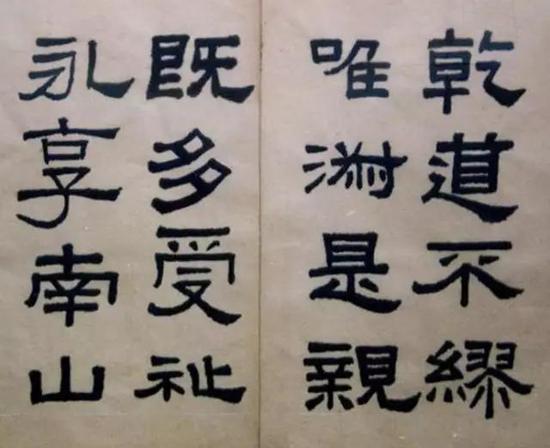 乾道不繆
唯淑是親
既多受祉
永享南山